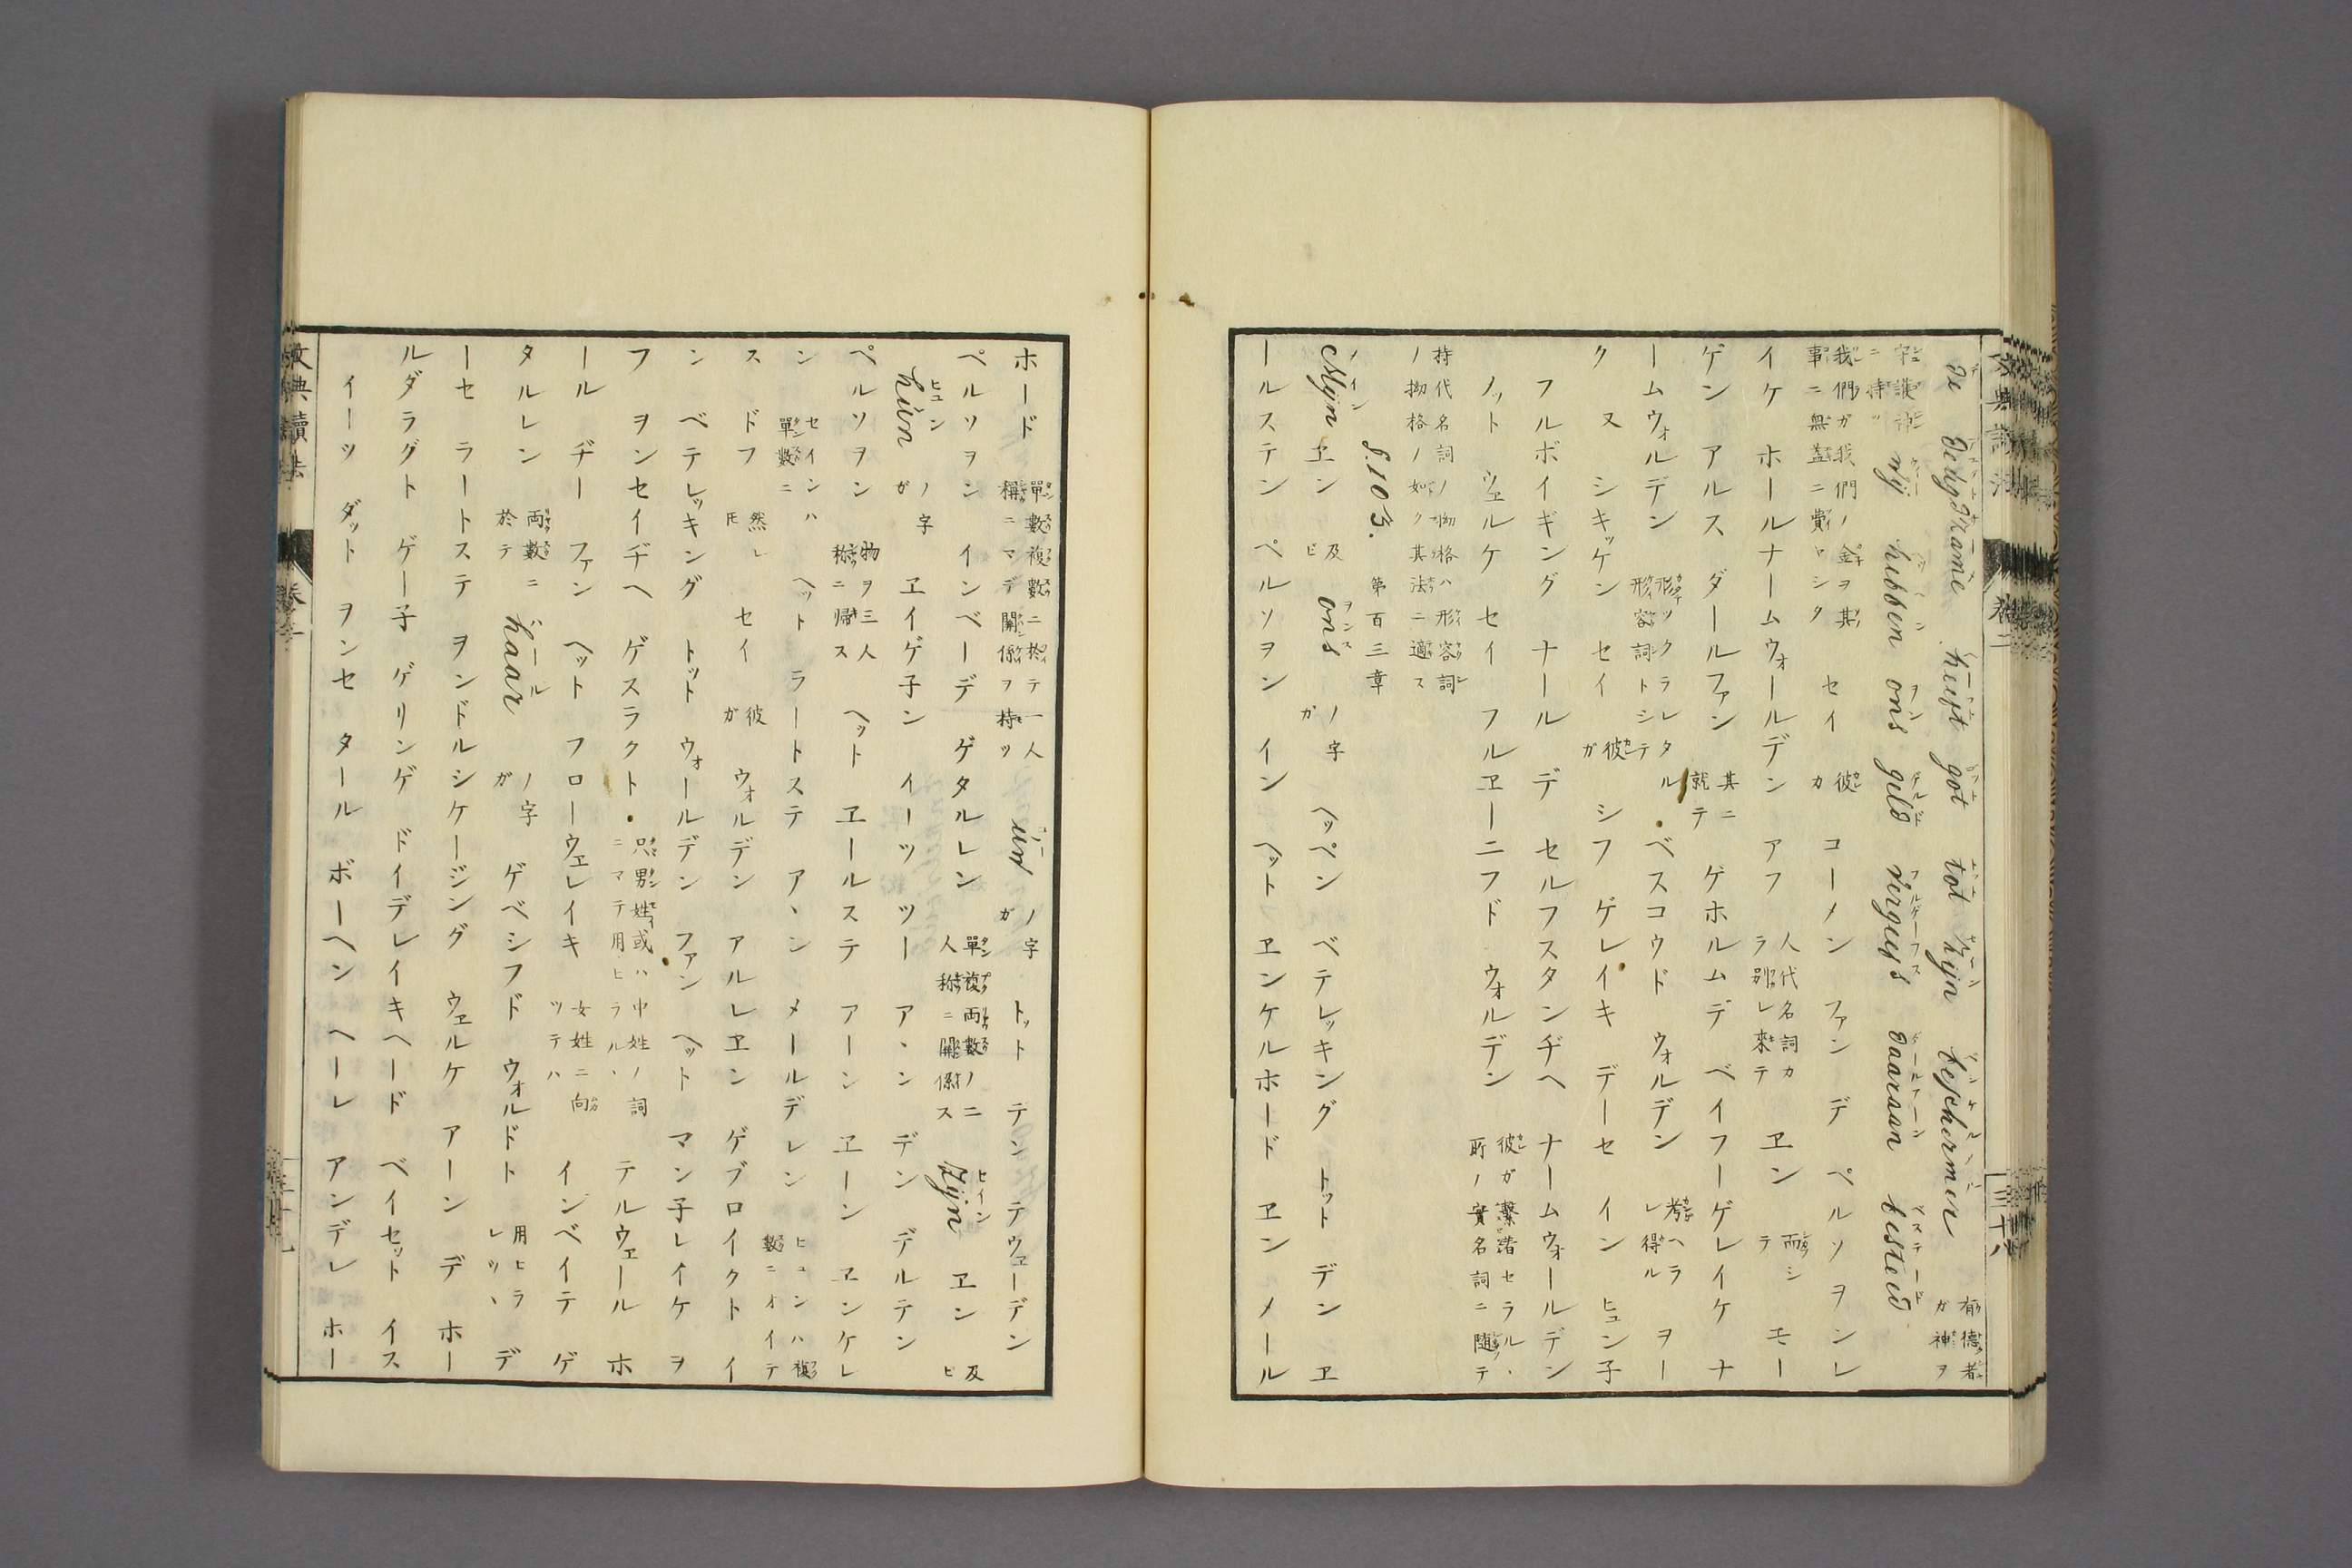 de deugdzame heeft god tot zijn beschermer 有德者ガ神ヲ
守護神ニ持ツ wij hebben ons geld vergeefs daaraan besteed
我們ガ我們ノ金ヲ其事ニ無益ニ費ロシタ セイ 彼カ コーメン ファン デ ペルソヲンレ
イケ ホールナームウォールデン アフ 人代名詞カラ別レ來テ ヱン 而シテラ モー
ゲン アルス ダールファン 其ニ就テ ゲホルムデ ベイフーゲレイケ ナ
ームウォルデン 形ツクラレタル形容詞トシテ ベスコウド ウォルデン 考ヘラレ得ル ヲー
ク ヌ シキッケン セイ 彼ガ シフ ゲレイキ デーセ イン ヒュン子
フルボイギング ナール デ セルフスタンヂヘ ナームウォールデン
ノット ウェルケ セイ フルヱーニフド ウォルデン 彼ガ繋諸セラル、所ノ實名詞ニ隨テ
持代名詞ノ拗格ハ形容詞ノ拗格ノ如ク其法ニ適ス
§.103. 第百三章
Mijn ヱン 及ビ ons ノ字ガ ヘッペン ベテレッキング トット デン ヱ
ールステン ペルソヲン イン ヘット ヱンケルホード ヱン メール
ホード 單數複數ニ於テ一人稱ニマデ關係ヲ持ツ uw ノ字ガ トット テン テウェーデン
ペルソヲン インベーデ ゲタルレン 單複両數ノ二人稱ニ關係ス Zijn ヱン 及ビ
hun ノ字ガ ヱイゲ子ン イーツ ツー アヽン デン デルテン
ペルソヲン 物ヲ三人稱ニ歸ス ヘット ヱールステ アーン ヱーン ヱンケレ
ン セインハ單數ニ ヘット ラートステ アヽン メールデレン ヒュンハ複數ニオイテ
ス ドフ 然レ𪜈 セイ 彼ガ ウォルデン アルレヱン ゲブロイクト イ
ン ベテレッキング トット ウォールデン ファン ヘット マン子レイケ ヲ
フ ヲンセイヂヘ ゲスラクト 只男姓或ハ中姓ノ詞ニマテ用ヒラル、 テルウェール ホ
ール ヂー ファン ヘット フローウェレイキ 女姓ニ向ツテハ インベイテ ゲ
タルレン 両數ニ於テ haar ノ字ガ ゲベシフド ウォルドト 用ヒラレツ、 デ
ーセ ラートステ ヲンドルシケージング ウェルケ アーン デ ホー
ルダラグト ゲー子 ゲリンゲ ドイデレイキヘード ベイセット イス
イーツ ダット ヲンセ タール ボーヘン ヘーレ アンデレ ホー
文典讀法 卷二